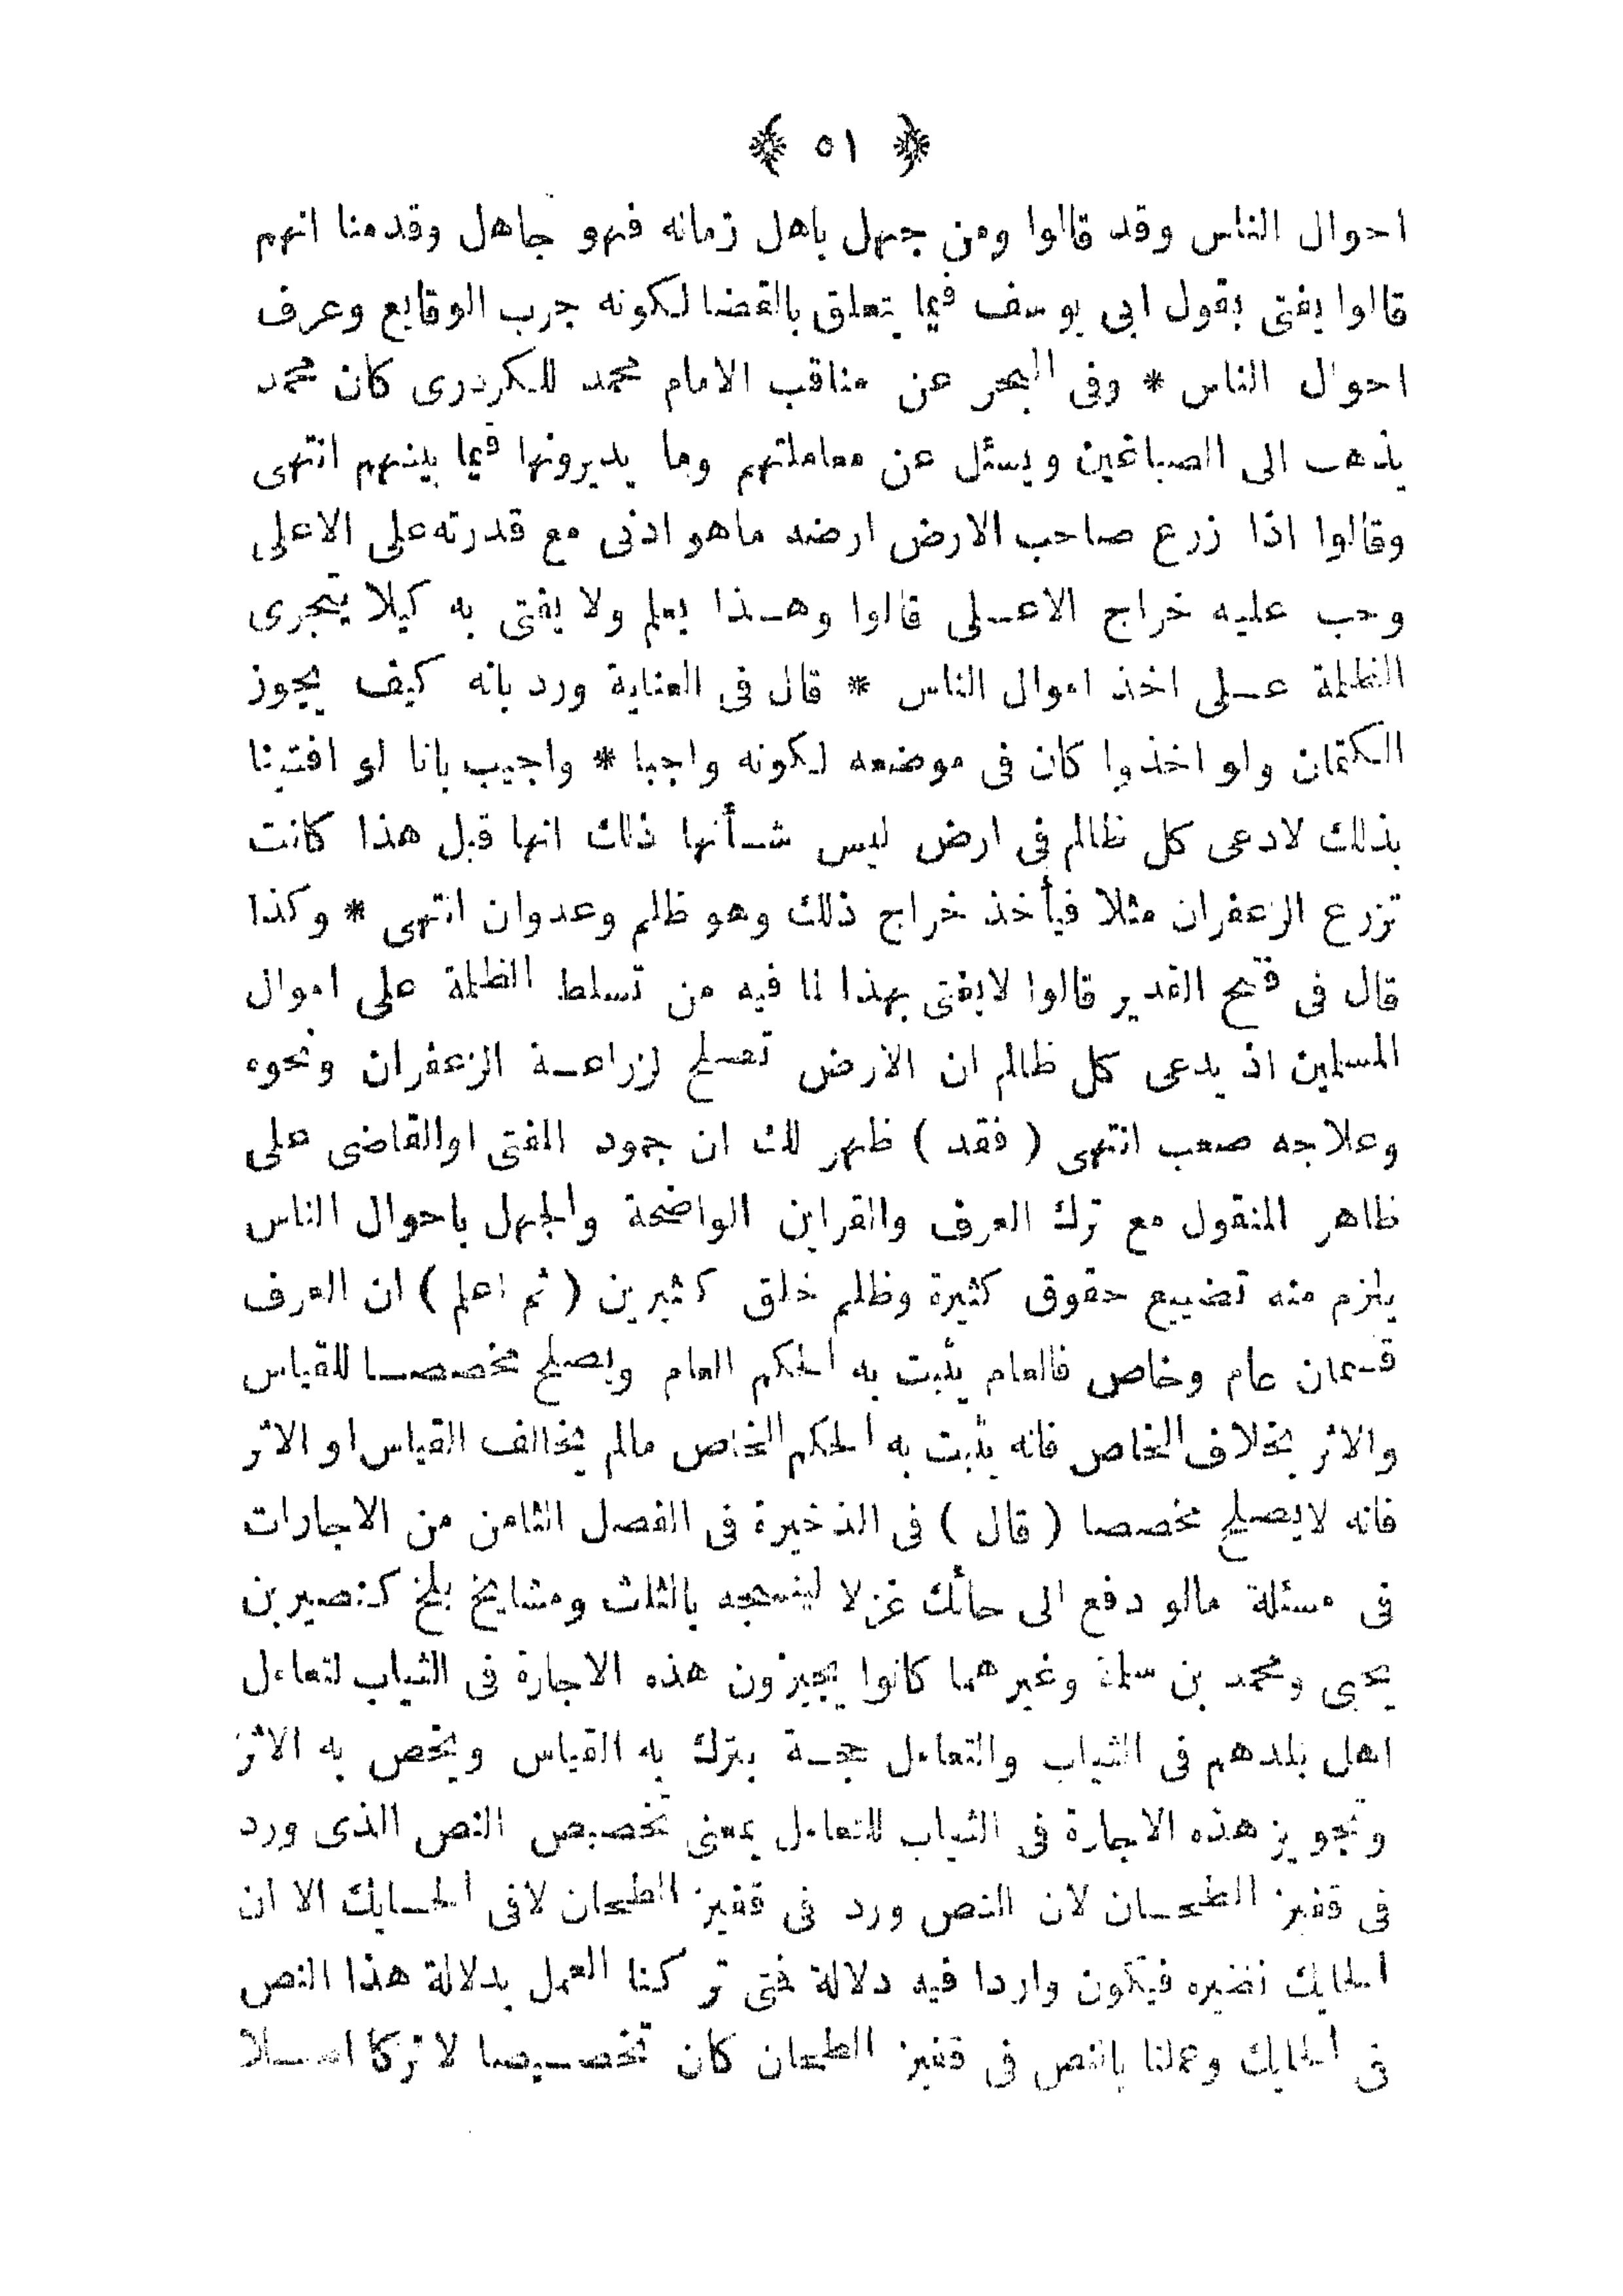 ﴿ ٥١ ﴾
احوال الناس وقد قالوا ومن جهل باهل زمانه فهو جاهل وقدمنا انهم
قالوا يفتى بقول ابى يوسف فيما يتعلق بالقضا لكونه جرب الوقايع وعرف
احوال الناس * وفى البحر عن مناقب الامام محمد للكردرى كان محمد
يذهب الى الصباغين ويسئل عن معاملتهم وما يديرونها فيما بينهم انتهى
وقالوا اذا زرع صاحب الارض ارضه ماهو ادنى مع قدرته على الاعلى
وجب عليه خراج الاعلى قالوا وهذا يعلم ولا يفتى به كيلا يتجرى
الظلمة على اخذ اموال الناس * قال فى العناية ورد بانه كيف يجوز
الكتمان ولو اخذوا كان فى موضعه لكونه واجبا * واجيب بانا لو افتينا
بذلك لادعى كل ظالم فى ارض ليس شأنها ذلك انها قبل هذا كانت
تزرع الزعفران مثلا فيأخذ خراج ذلك وهو ظلم وعدوان انتهى * وكذا
قال فى فتح القدير قالوا لايفتى بهذا لما فيه من تسلط الظلمة على اموال
المسلمين اذ يدعى كل ظالم ان الارض تصلح لزراعة الزعفران ونحوه
وعلاجه صعب انتهى ( فقد ) ظهر لك ان جمود المفتى اوالقاضى على
ظاهر المنقول مع ترك العرف والقراين الواضحة والجهل باحوال الناس
يلزم منه تضييع حقوق كثيرة وظلم خلق كثيرين ( ثم اعلم ) ان العرف
قسمان عام وخاص فالعام يثبت به الحكم العام ويصلح مخصصا للقياس
والاثر بخلاف الخاص فانه يثبت به الحكم الخاص مالم يخالف القياس او الاثر
فانه لايصلح مخصصا ( قال ) فى الذخيرة فى الفصل الثامن من الاجارات
فى مسئلة مالو دفع الى حائك غزلا لينسجه بالثلث ومشايخ بلخ كنصير بن
يحيى ومحمد بن سلمة وغيرهما كانوا يجيزون هذه الاجارة فى الثياب لتعامل
اهل بلدهم فى الثياب والتعامل حجة يترك به القياس ويخص به الاثر
وتجويز هذه الاجارة فى الثياب للتعامل بمعنى تخصيص النص الذى ورد
فى قفيز الطحان لان النص ورد فى قفيز الطحان لافى الحايك الا ان
الحايك نضيره فيكون واردا فيه دلالة فمتى تركنا العمل بدلالة هذا النص
فى الحايك وعملنا بالنص فى قفيز الطحان كان تخصيصا لا تركا اصلا